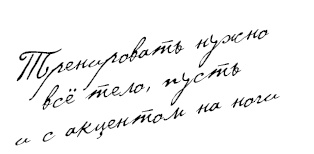 Тренировать нужно
всё тело, пусть
и с акцентом на ноги